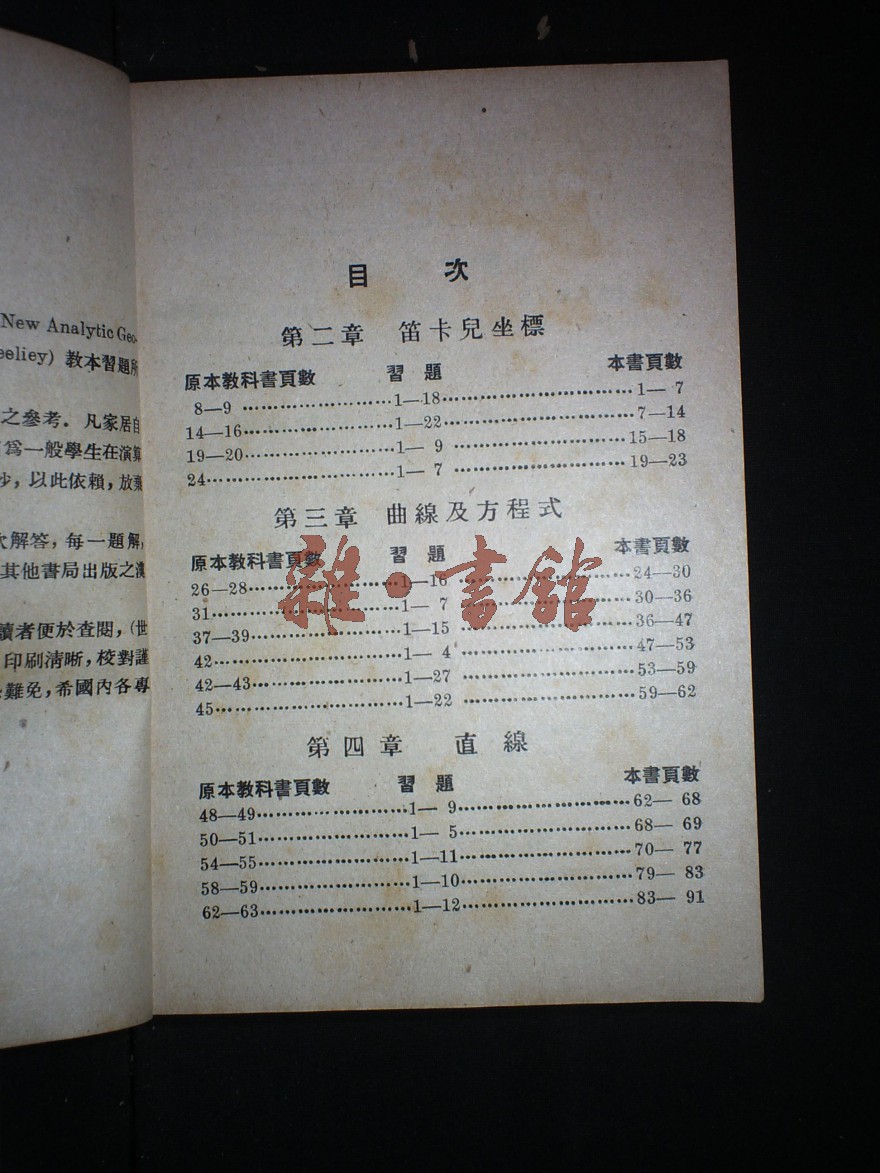 New Analytic Geo-
eeliey) 教本習題所
之參考．凡家居自
爲一般學生在演算
抄，以此依賴，放棄
次解答，每一題解，
其他書局出版之漢
讀者便於查閱，(世
印刷淸晰，校對謹
難免，希國內各專
目 次
第二章 笛卡兒坐標
原本教科書頁數 習題 本書頁數
8—9 ……………………1—18……………………………1— 7
14—16……………………1—22……………………………7—14
19—20……………………1— 9 ……………………………15—18
24……………………………1— 7 ……………………………19—23
第三章 曲線及方程式
原本教科書頁數 習題 本書頁數
26—28……………………1—16 ……………………………24—30
31……………………………1— 7 ……………………………30—36
37—39……………………1—15 ……………………………36—47
42……………………………1— 4 ……………………………47—53
42—43……………………1—27 ……………………………53—59
45……………………………1—22 ……………………………59—62
第四章 直線
原本教科書頁數 習題 本書頁數
48—49……………………1— 9……………………………62— 68
50—51……………………1— 5……………………………68— 69
54—55……………………1—11……………………………70— 77
58—59……………………1—10……………………………79— 83
62—63……………………1—12……………………………83— 91
雜·書館